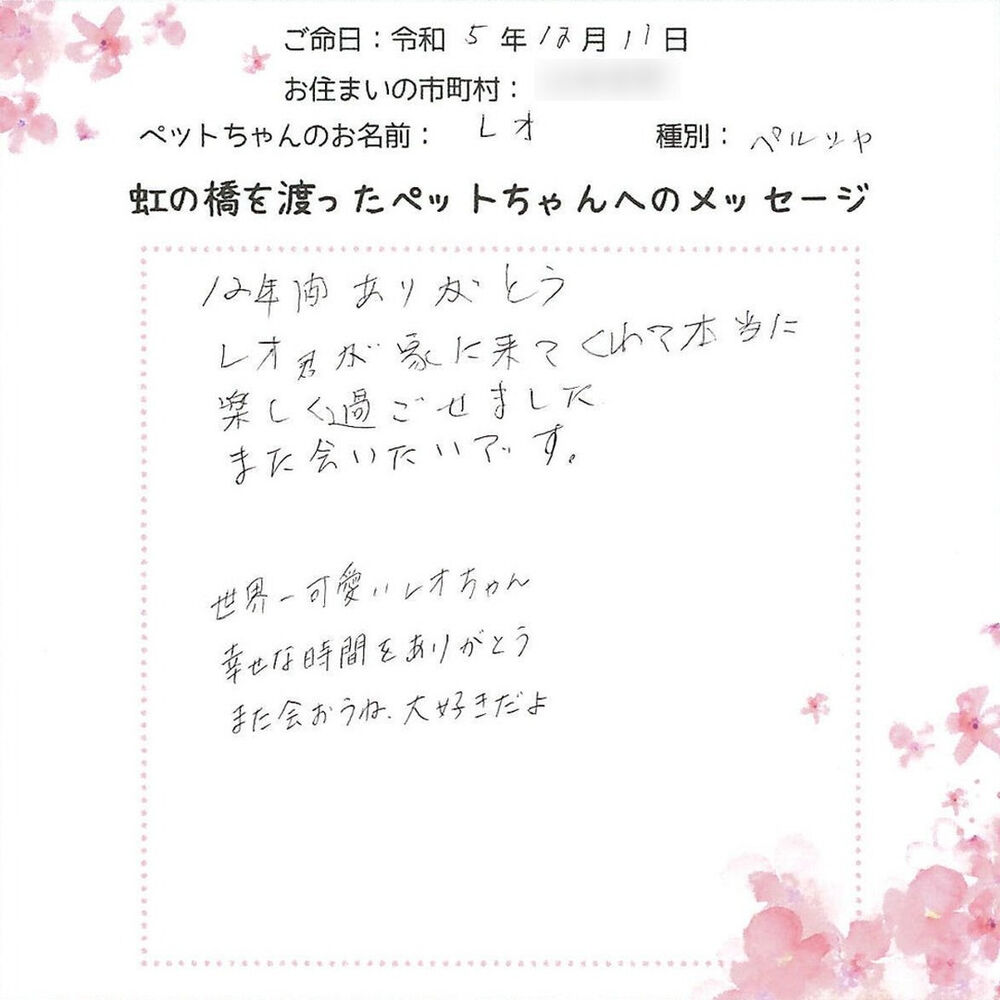 ご命日：令和 5 年 12 月 11 日
お住まいの市町村：
ペットちゃんのお名前： レオ 種別： ペルシャ
虹の橋を渡ったペットちゃんへのメッセージ
12年間 ありがとう
レオ君が家に来てくれて本当に
楽しく過ごせました
また会いたいです。
世界一可愛いレオちゃん
幸せな時間をありがとう
また会おうね、大好きだよ